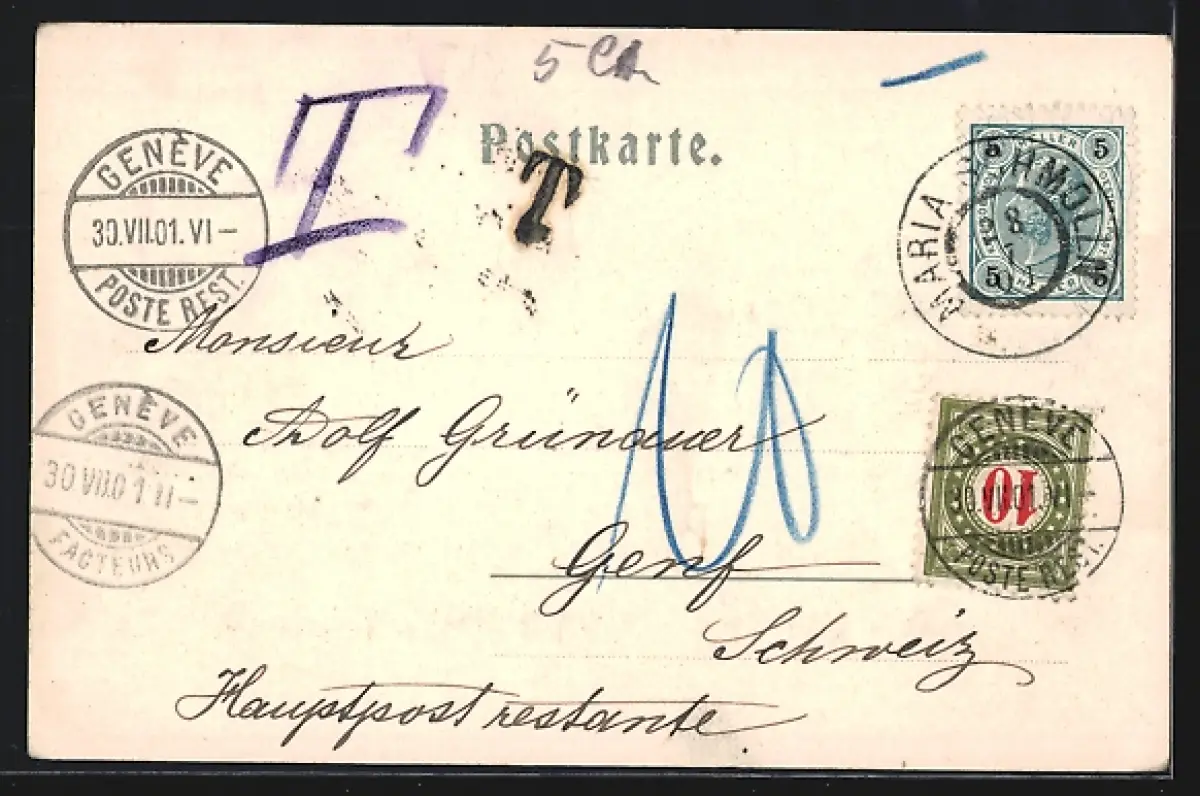 5 Ct.
T
Postkarte.
T
GENÈVE
30.VII.01.VI –
POSTE REST.
5 HELLER 5
5 5
MARIA SCHMOLLN
8
Monsieur
Adolf Grünauer
10
Genf
Schweiz
Hauptpost restante
GENÈVE
30 VII.01 II –
FACTEURS
10
GENÈVE
30.VII.01.VI –
POSTE REST.